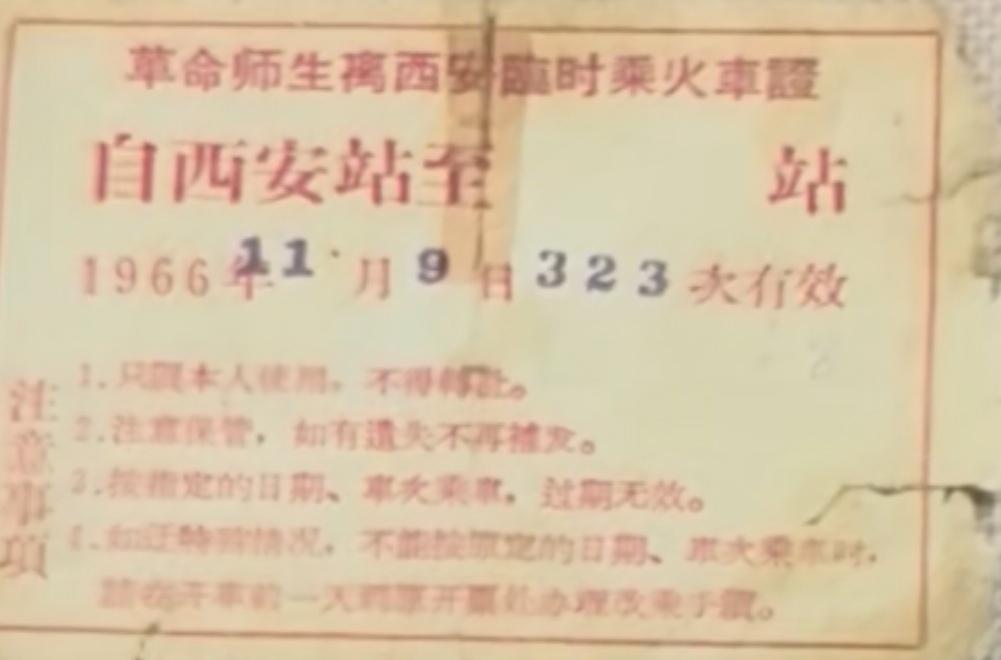 革命师生离西安臨时乘火車證
自西安站至 站
1966年11月9日323次有效
注意事項
1.只限本人使用，不得轉让。
2.注意保管，如有遺失不再補发。
3.按指定的日期、車次乘車，过期无效。
4.如迂特殊情况，不能按原定的日期、車次乘車时，
請在开車前一天到原开票处办理改乘手續。